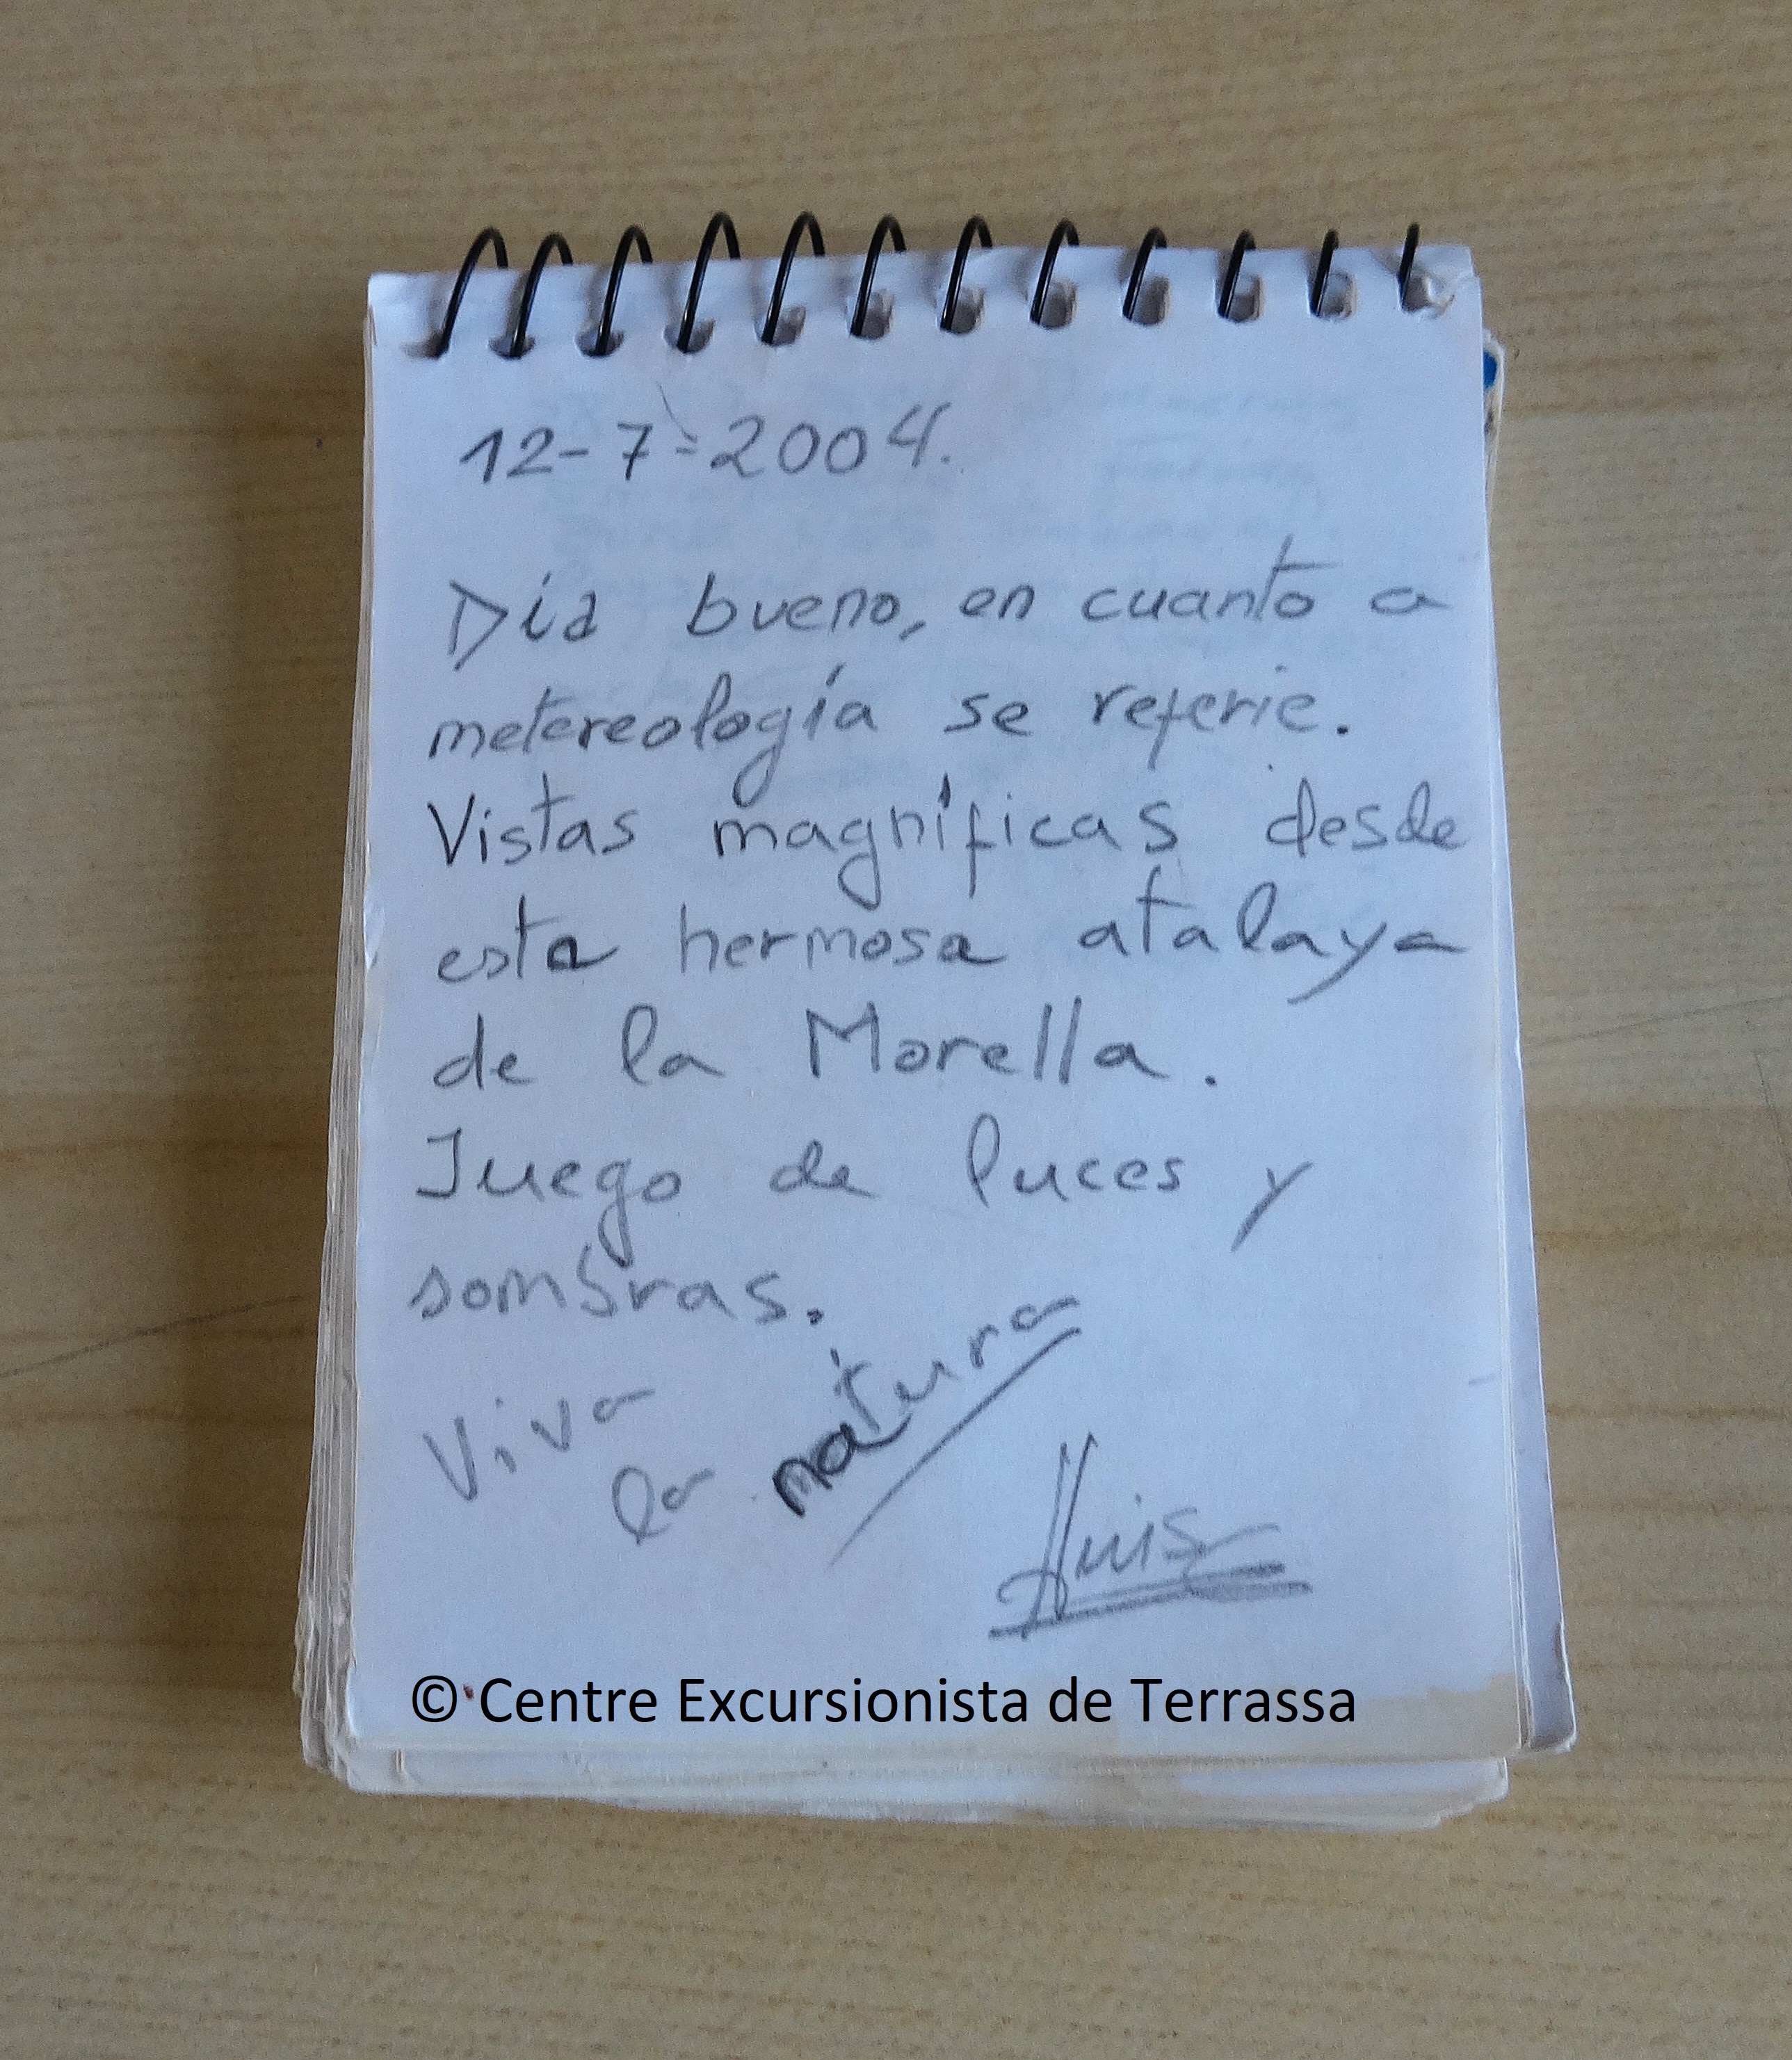 12-7-2004.
Dia bueno, en cuanto a
metereología se referie.
Vistas magníficas desde
esta hermosa atalaya
de la Morella.
Juego de luces y
sombras.
Viva
la natura
© Centre Excursionista de Terrassa